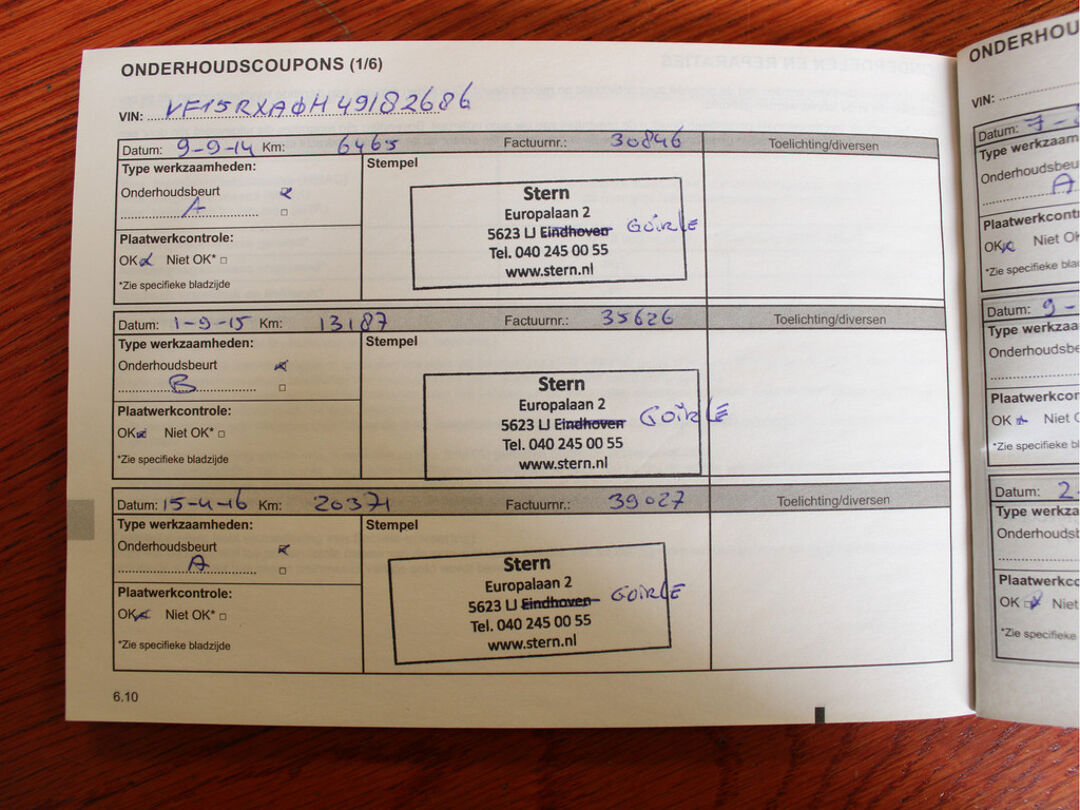 ONDERHOUDSCOUPONS (1/6)
VIN: VF15RXAØH49182686
Datum: 9-9-14 Km: 6465 Factuurnr.: 30846 Toelichting/diversen
Type werkzaamheden: Stempel
Onderhoudsbeurt
A
Plaatwerkcontrole:
OK Niet OK*
*Zie specifieke bladzijde
Stern
Europalaan 2
5623 LJ Eindhoven GOIRLE
Tel. 040 245 00 55
www.stern.nl
Datum: 1-9-15 Km: 13187 Factuurnr.: 35626 Toelichting/diversen
Type werkzaamheden: Stempel
Onderhoudsbeurt
B
Plaatwerkcontrole:
OK Niet OK*
*Zie specifieke bladzijde
Stern
Europalaan 2
5623 LJ Eindhoven GOIRLE
Tel. 040 245 00 55
www.stern.nl
Datum: 15-4-16 Km: 20371 Factuurnr.: 39027 Toelichting/diversen
Type werkzaamheden: Stempel
Onderhoudsbeurt
A
Plaatwerkcontrole:
OK Niet OK*
*Zie specifieke bladzijde
Stern
Europalaan 2
5623 LJ Eindhoven GOIRLE
Tel. 040 245 00 55
www.stern.nl
6.10
ONDERHOU
VIN:
Datum: 7-
Type werkzaam
Onderhoudsbeu
A
Plaatwerkcont
OK Niet O
*Zie specifieke bla
Datum: 9-
Type werkzaa
Onderhoudsbe
Plaatwerkcor
OK Niet
*Zie specifieke b
Datum: 2
Type werkza
Onderhoudsb
Plaatwerkco
OK Niet
*Zie specifieke